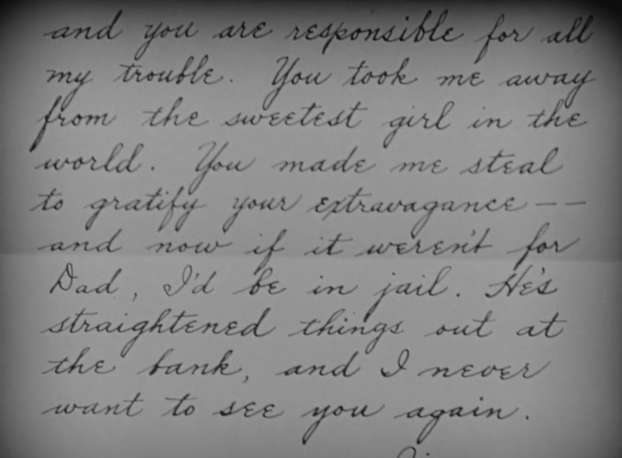 and you are responsible for all
my trouble. You took me away
from the sweetest girl in the
world. You made me steal
to gratify your extravagance --
and now if it weren't for
Dad, I'd be in jail. He's
straightened things out at
the bank, and I never
want to see you again.